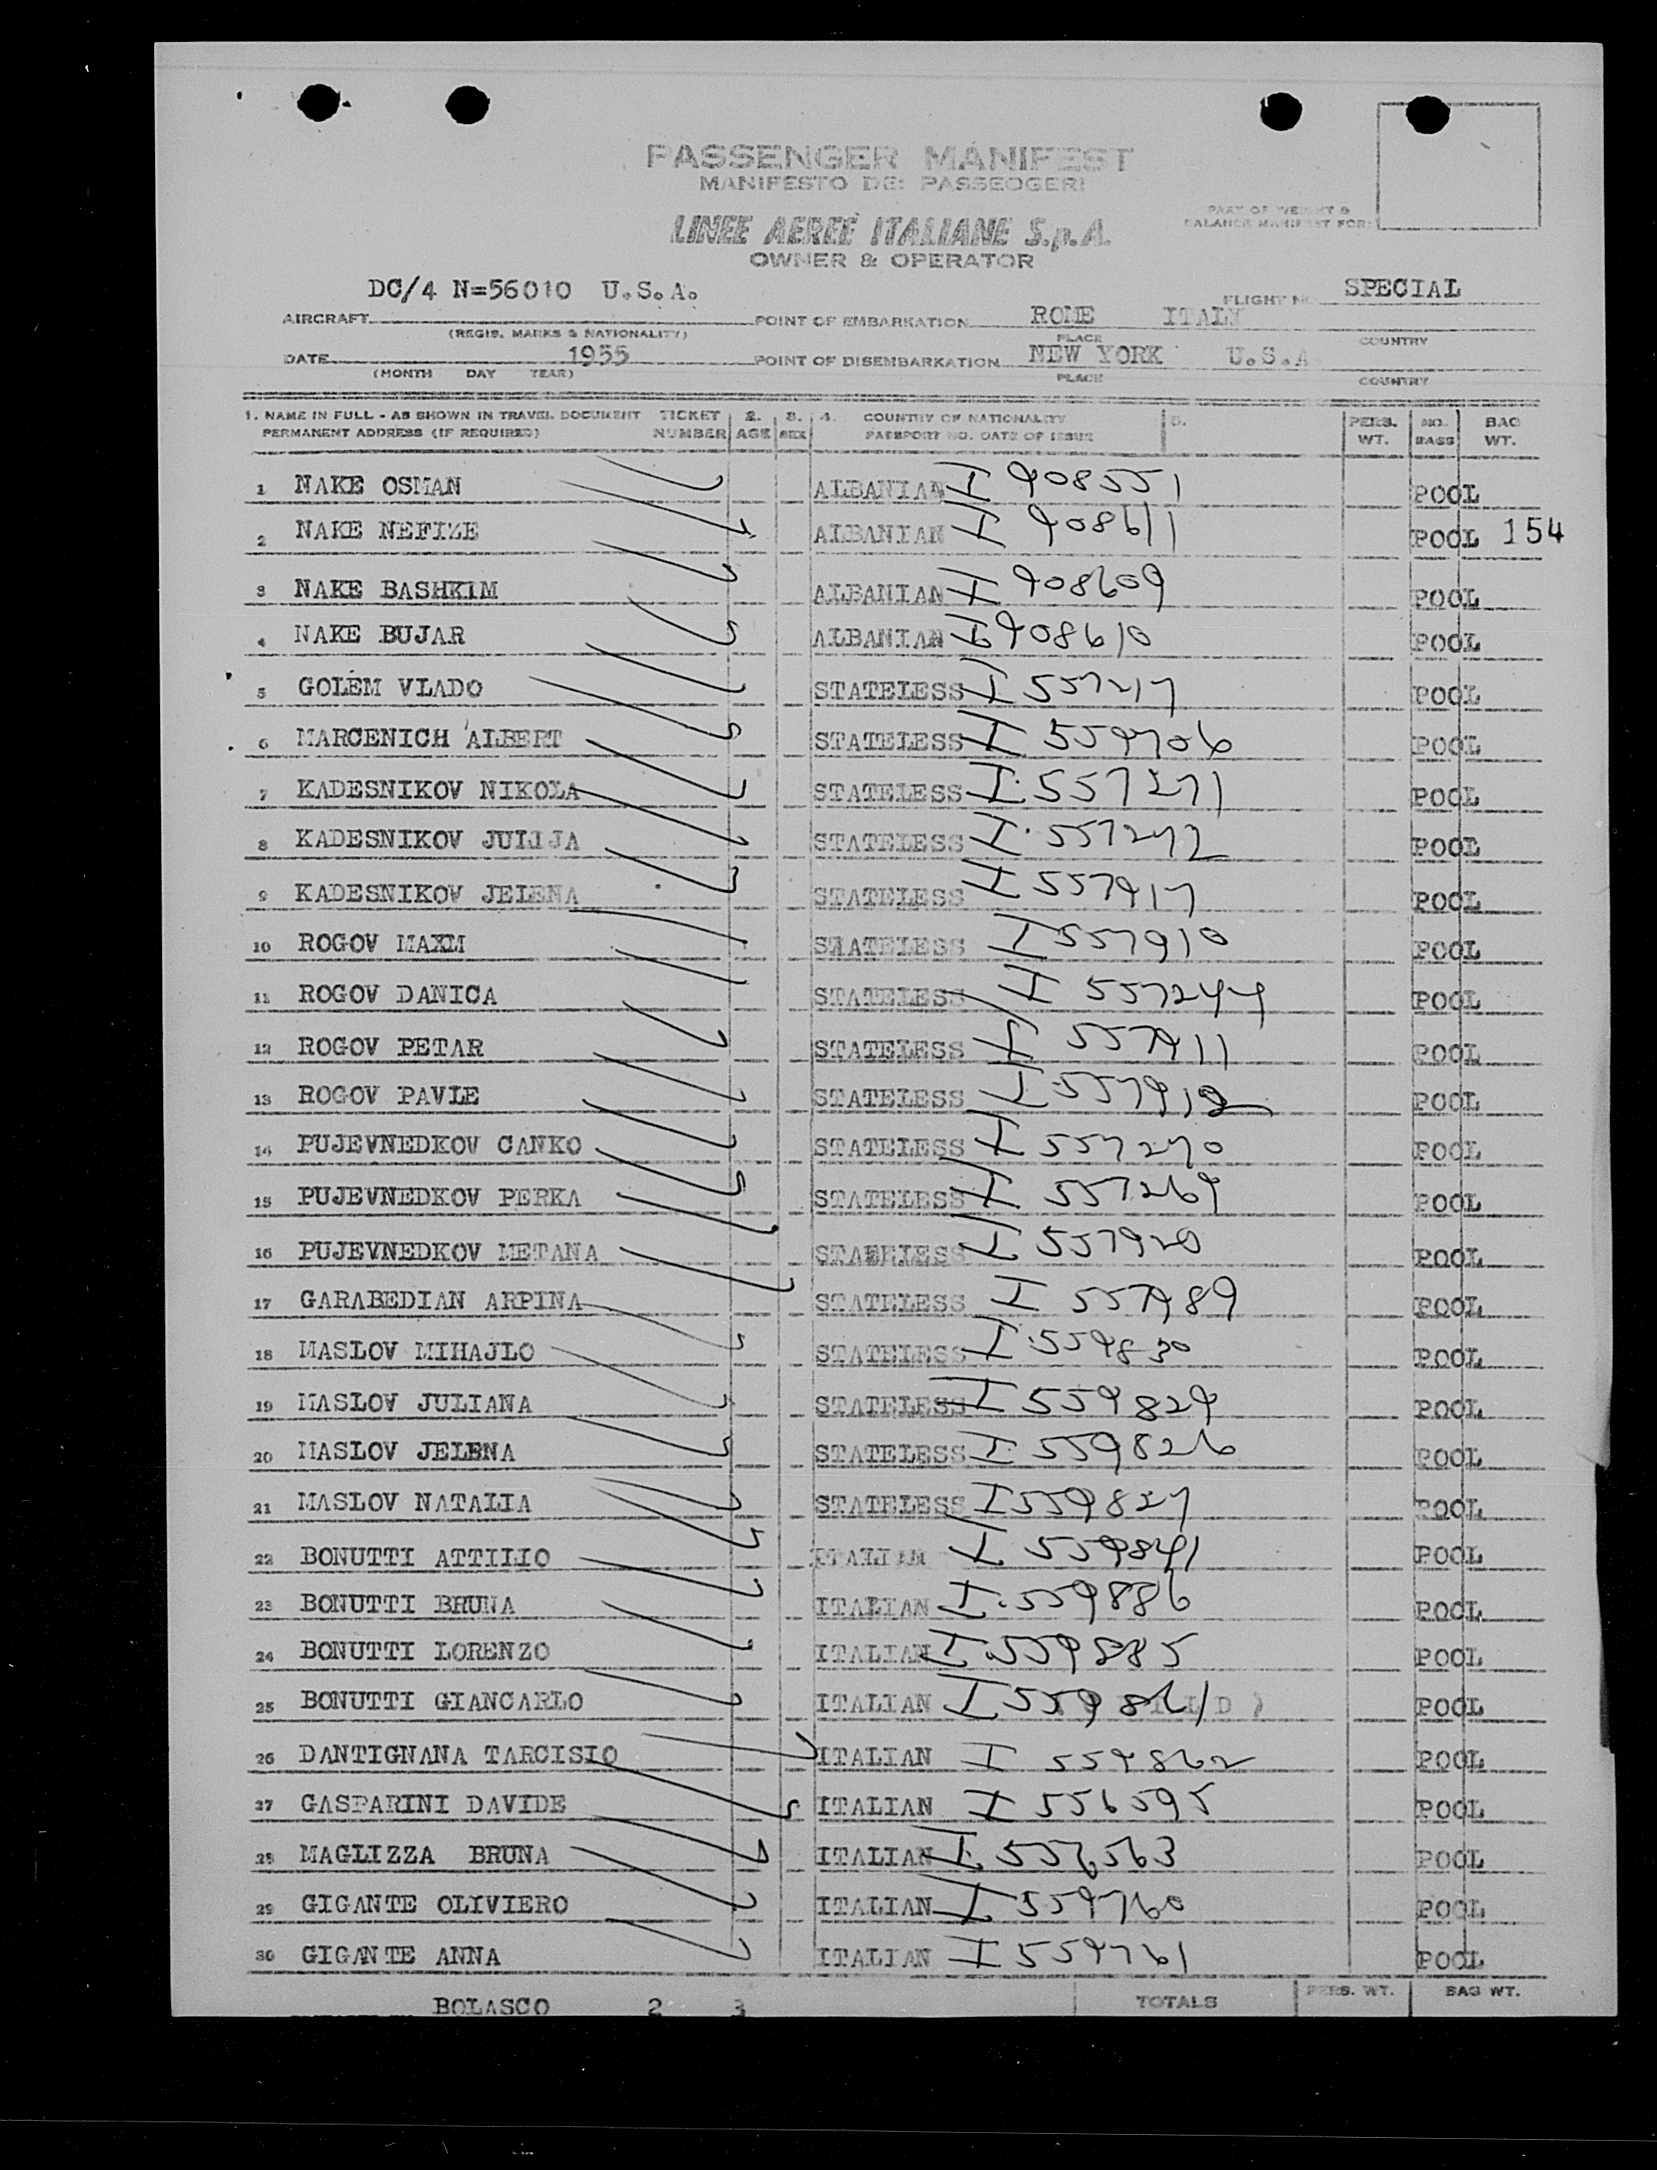 PASSENGER MANIFEST
MANIFESTO DEI PASSEOGERI
PART OF WEIGHT &
BALANCE MANIFEST FOR:
LINEE AEREE ITALIANE S.p.A.
OWNER & OPERATOR
DC/4 N=56010 U.S.A. FLIGHT NO. SPECIAL
AIRCRAFT POINT OF EMBARKATION ROME ITALY
(REGIS. MARKS & NATIONALITY) PLACE COUNTRY
DATE 1955 POINT OF DISEMBARKATION NEW YORK U.S.A
(MONTH DAY YEAR) PLACE COUNTRY
1. NAME IN FULL - AS SHOWN IN TRAVEL DOCUMENT TICKET 2. 3. 4. COUNTRY OF NATIONALITY 5. PERS. NO. BAG
PERMANENT ADDRESS (IF REQUIRED) NUMBER AGE SEX PASSPORT NO. DATE OF ISSUE WT. BAGS WT.
1 NAKE OSMAN ALBANIAN I 908551 POOL
2 NAKE NEFIZE ALBANIAN I 908611 POOL 154
3 NAKE BASHKIM ALBANIAN I 908609 POOL
4 NAKE BUJAR ALBANIAN I 908610 POOL
5 GOLEM VLADO STATELESS I 557217 POOL
6 MARCENICH ALBERT STATELESS I 559706 POOL
7 KADESNIKOV NIKOLA STATELESS I 557271 POOL
8 KADESNIKOV JULIJA STATELESS I 557272 POOL
9 KADESNIKOV JELENA STATELESS I 557917 POOL
10 ROGOV MAXM STATELESS I 557910 POOL
11 ROGOV DANICA STATELESS I 557244 POOL
12 ROGOV PETAR STATELESS I 557911 POOL
13 ROGOV PAVLE STATELESS I 557912 POOL
14 PUJEVNEDKOV CANKO STATELESS I 557270 POOL
15 PUJEVNEDKOV PERKA STATELESS I 557269 POOL
16 PUJEVNEDKOV METANA STATELESS I 557920 POOL
17 GARABEDIAN ARPINA STATELESS I 557989 POOL
18 MASLOV MIHAJLO STATELESS I 559830 POOL
19 MASLOV JULIANA STATELESS I 559829 POOL
20 MASLOV JELENA STATELESS I 559826 POOL
21 MASLOV NATALIA STATELESS I 559827 POOL
22 BONUTTI ATTILIO ITALIAN I 559841 POOL
23 BONUTTI BRUNA ITALIAN I 559886 POOL
24 BONUTTI LORENZO ITALIAN I 559885 POOL
25 BONUTTI GIANCARLO ITALIAN I 559861 POOL
26 DANTIGNANA TARCISIO ITALIAN I 559862 POOL
27 GASPARINI DAVIDE ITALIAN I 556595 POOL
28 MAGLIZZA BRUNA ITALIAN I 556563 POOL
29 GIGANTE OLIVIERO ITALIAN I 559760 POOL
30 GIGANTE ANNA ITALIAN I 559761 POOL
BOLASCO 2 3 TOTALS PERS. WT. BAG WT.